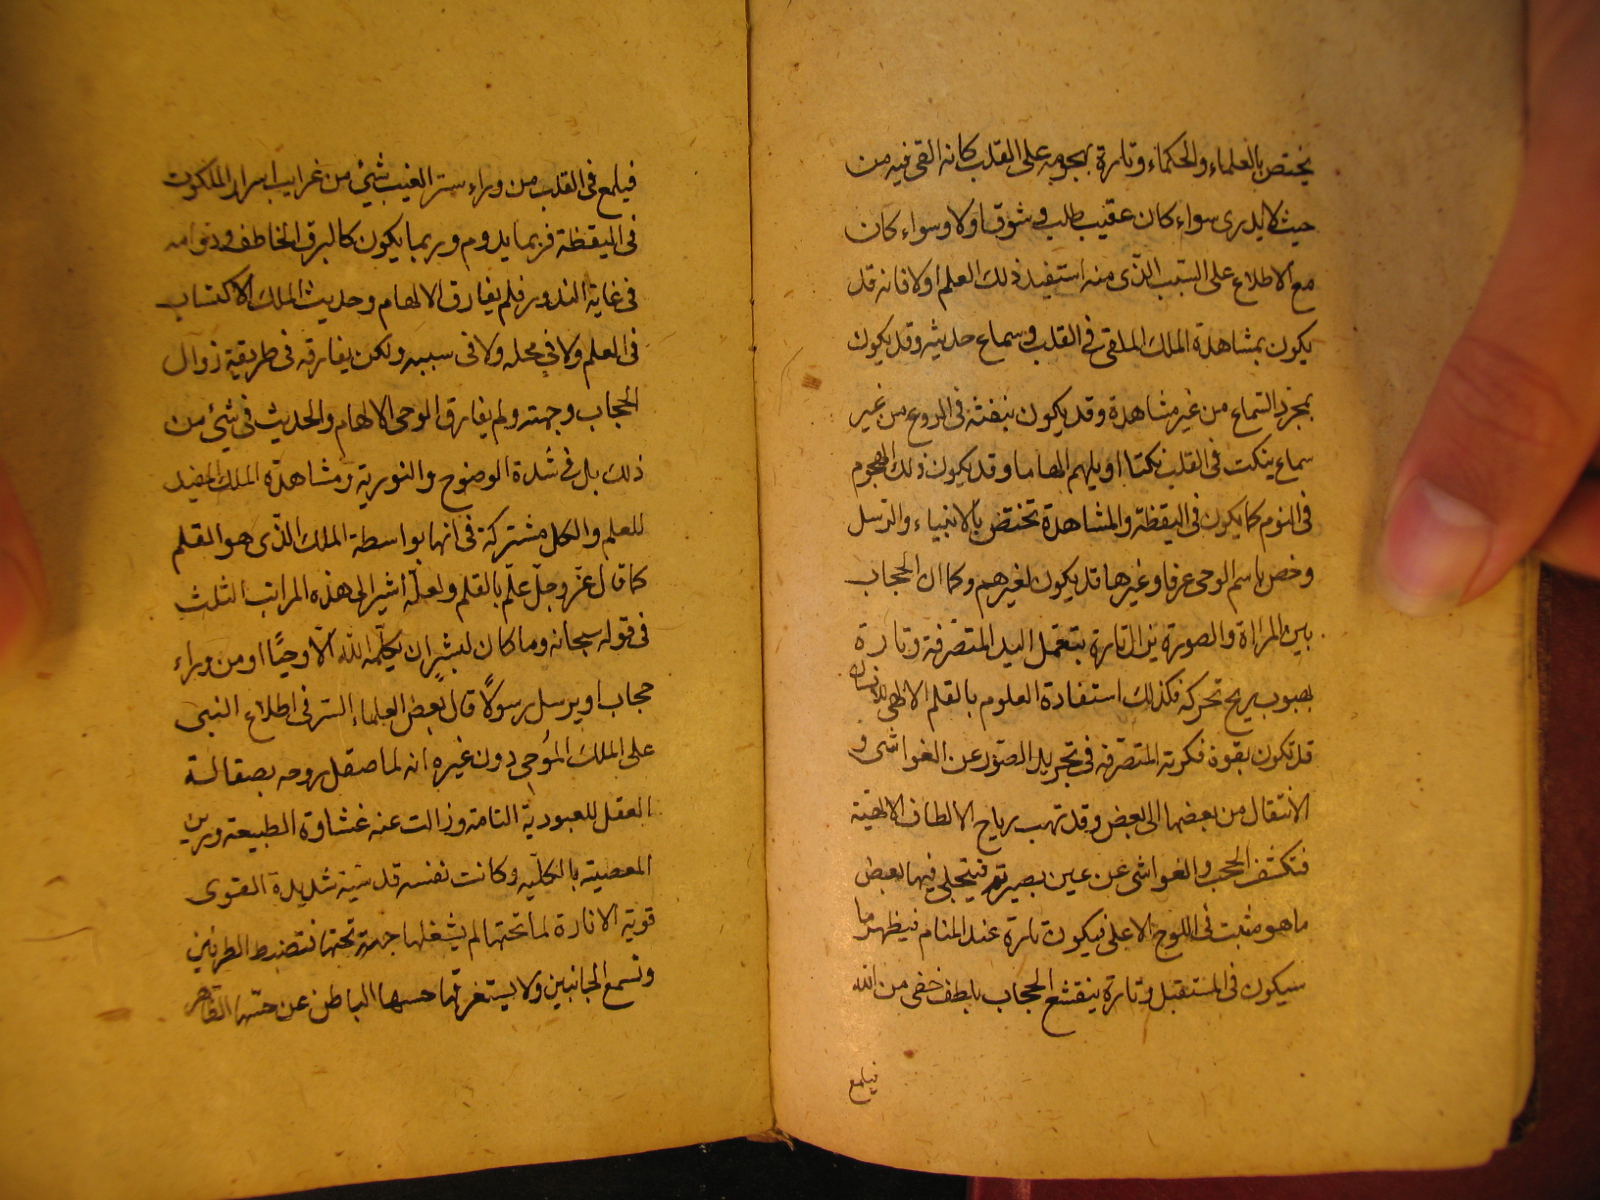 يختص بالعلماء والحكماء وتارة بهجومه على القلب كانه القى فيه من
حيث لا يدرى سواء كان عقيب طلب وشوق اولا وسواء كان
مع الاطلاع على السبب الذى منه استفيد ذلك العلم اولا فانه قد
يكون بمشاهدة الملك الملقى فى القلب وسماع حديثه وقد يكون
بمجرد السماع من غير مشاهدة وقد يكون بنفثه فى الروع من غير
سماع ينكت فى القلب نكتا او يلهم الهاما وقد يكون ذلك الهجوم
فى النوم كما يكون فى اليقظة والمشاهدة تختص بالانبياء والرسل
وخص باسم الوحى عرفا وغيرها قد يكون لغيرهم وكما ان الحجاب
بين المراة والصورة يزال تارة بتعمل اليد المتصرفة وتارة
بهبوب ريح تحركه فكذلك استفادة العلوم بالقلم الالهى للانسان
قد تكون بقوة فكرته المتصرفة فى تجريد الصور عن الغواشى و
الانتقال من بعضها الى بعض وقد تهب رياح الالطاف الالهية
فتكشف الحجب والغواشى عن عين بصيرته فيتجلى فيها بعض
ما هو مثبت فى اللوح الاعلى فيكون تارة عند المنام فيظهر ما
سيكون فى المستقبل وتارة ينقشع الحجاب بلطف خفى من الله
فيلمع
فيلمع فى القلب من وراء ستر الغيب شئ من غرايب اسرار الملكوت
فى اليقظة فربما يدوم وربما يكون كالبرق الخاطف ودوامه
فى غاية الندور فلم يفارق الالهام وحديث الملك الاكتساب
فى العلم ولا فى محله ولا فى سببه ولكن يفارقه فى طريقة زوال
الحجاب وجهته ولم يفارق الوحى الالهام والحديث فى شئ من
ذلك بل فى شدة الوضوح والنورية ومشاهدة الملك المفيد
للعلم والكل مشتركة فى انها بواسطة الملك الذى هو القلم
كما قال عز وجل علم بالقلم ولعله اشير الى هذه المراتب الثلث
فى قوله سبحانه وما كان لبشر ان يكلمه الله الا وحيًا او من وراء
حجاب او يرسل رسولًا قال بعض العلماء السر فى اطلاع النبى
على الملك المُوحى دون غيره انه لما صقل روحه بصقالة
العقل للعبودية التامة وزالت عنه غشاوة الطبيعة ورين
المعصية بالكلية وكانت نفسه قدسية شديدة القوى
قوية الانارة لما تحتها لم يشغلها جهة تحتها فتضبط الطرفين
وتسع الجانبين ولا يستغرقها حسها الباطن عن حسها الظاهر